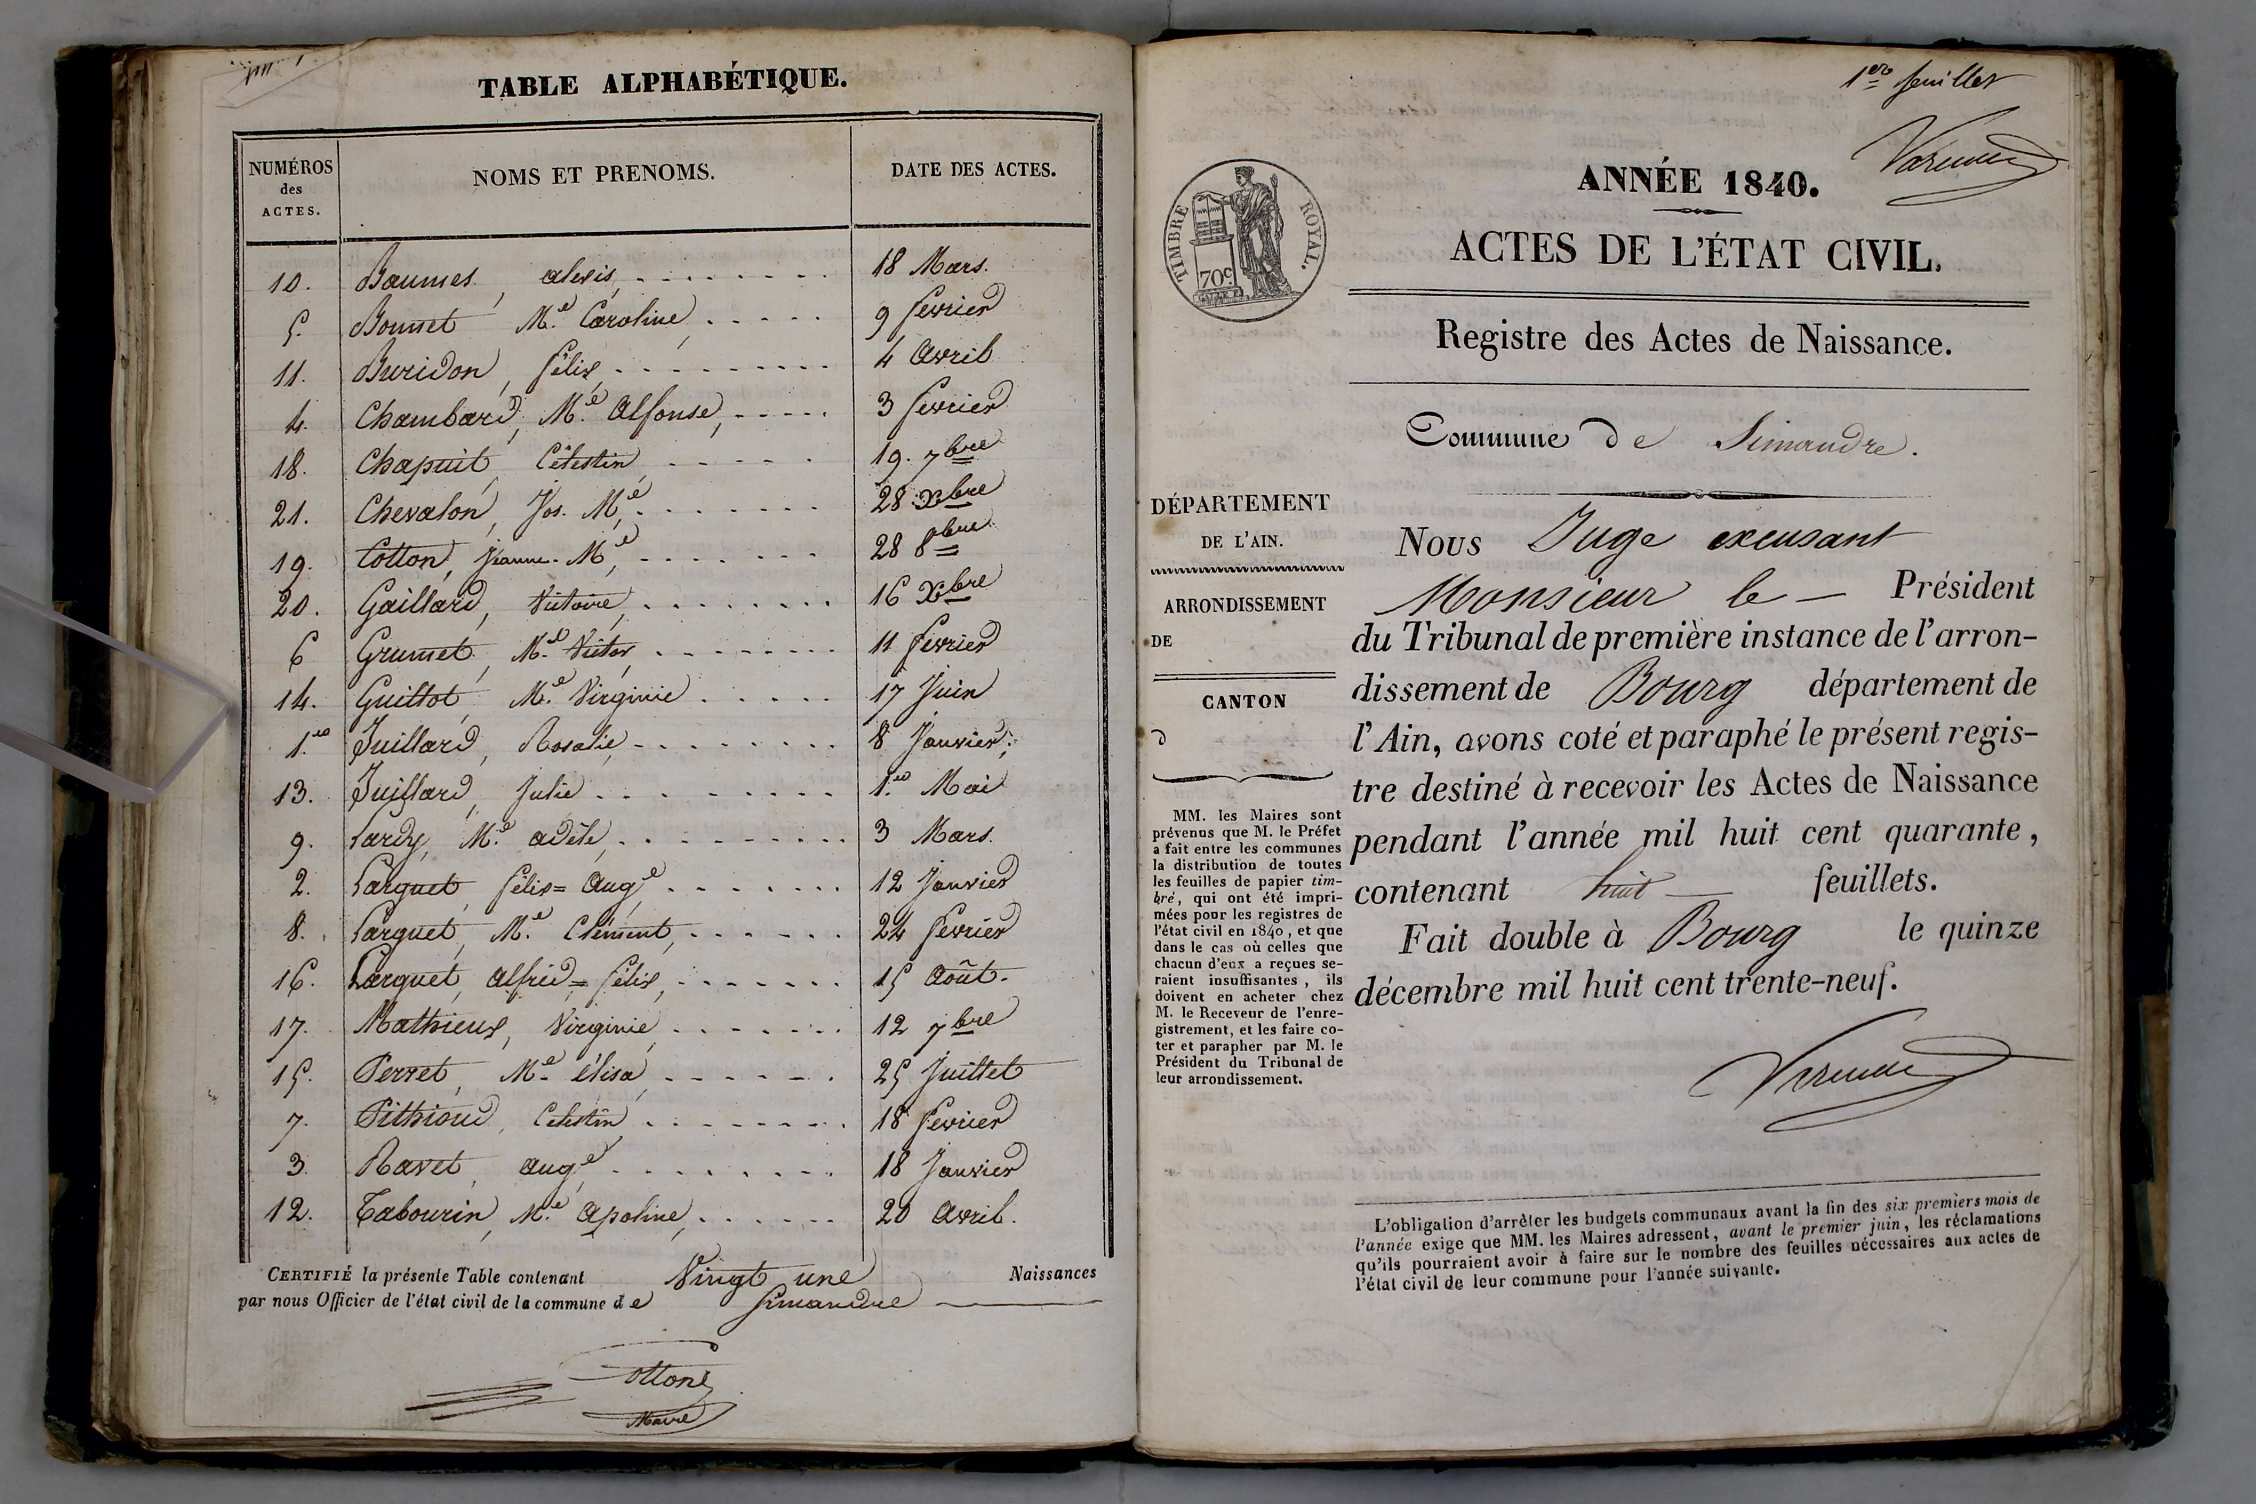 TABLE ALPHABÉTIQUE.
NUMÉROS
des
ACTES.
NOMS ET PRENOMS.
DATE DES ACTES.
10. Baumes, alexis, 18 Mars.
5. Bonnet M.e Caroline, 9 fevrier
11. Buridon, félix 4 Avril
4. Chambard, M.e Alfonse, 3 fevrier
18. Chapuit, Célestin 19. 7bre
21. Chevalon, Jos. M.e 28 Xbre
19. Cotton, Jeanne-M.e, 28 8bre
20. Gaillard, Victoire, 16 Xbre
6 Grumet, M.e Victor, 11 fevrier
14. Guillot, M.e Virginie 17 Juin
1.re Juillard, Rosalie, 8 Janvier.
13. Juillard, Julie 1.er Mai
9. Lardy, M.e adèle, 3 Mars.
2. Larguet, félix=Aug.e 12 Janvier
8. Larguet, M.e Clément, 24 fevrier
16. Larguet, Alfred=félix, 15 Août.
17. Mathieux, Virginie, 12 7bre
15. Perret, M.e élisa, 25 Juillet
7. Pithioud, Celestin 18 fevrier
3. Ravet, aug.e 18 Janvier
12. Tabourin, M.e Apoline, 20 Avril.
CERTIFIÉ la présente Table contenant Vingt une Naissances
par nous Officier de l'état civil de la commune de Simandre
Cottone
Maire
1er feuillet
ANNÉE 1840.
TIMBRE ROYAL.
70c
ACTES DE L'ÉTAT CIVIL.
Registre des Actes de Naissance.
Commune de Simandre.
DÉPARTEMENT
DE L'AIN.
ARRONDISSEMENT
DE
CANTON
d
MM. les Maires sont
prévenus que M. le Préfet
a fait entre les communes
la distribution de toutes
les feuilles de papier tim-
bré, qui ont été impri-
mées pour les registres de
l'état civil en 1840, et que
dans le cas où celles que
chacun d'eux a reçues se-
raient insuffisantes, ils
doivent en acheter chez
M. le Receveur de l'enre-
gistrement, et les faire co-
ter et parapher par M. le
Président du Tribunal de
leur arrondissement.
Nous Juge excusant
Monsieur le — Président
du Tribunal de première instance de l'arron-
dissement de Bourg département de
l'Ain, avons coté et paraphé le présent regis-
tre destiné à recevoir les Actes de Naissance
pendant l'année mil huit cent quarante,
contenant huit — feuillets.
Fait double à Bourg le quinze
décembre mil huit cent trente-neuf.
L'obligation d'arrêter les budgets communaux avant la fin des six premiers mois de
l'année exige que MM. les Maires adressent, avant le premier juin, les réclamations
qu'ils pourraient avoir à faire sur le nombre des feuilles nécessaires aux actes de
l'état civil de leur commune pour l'année suivante.